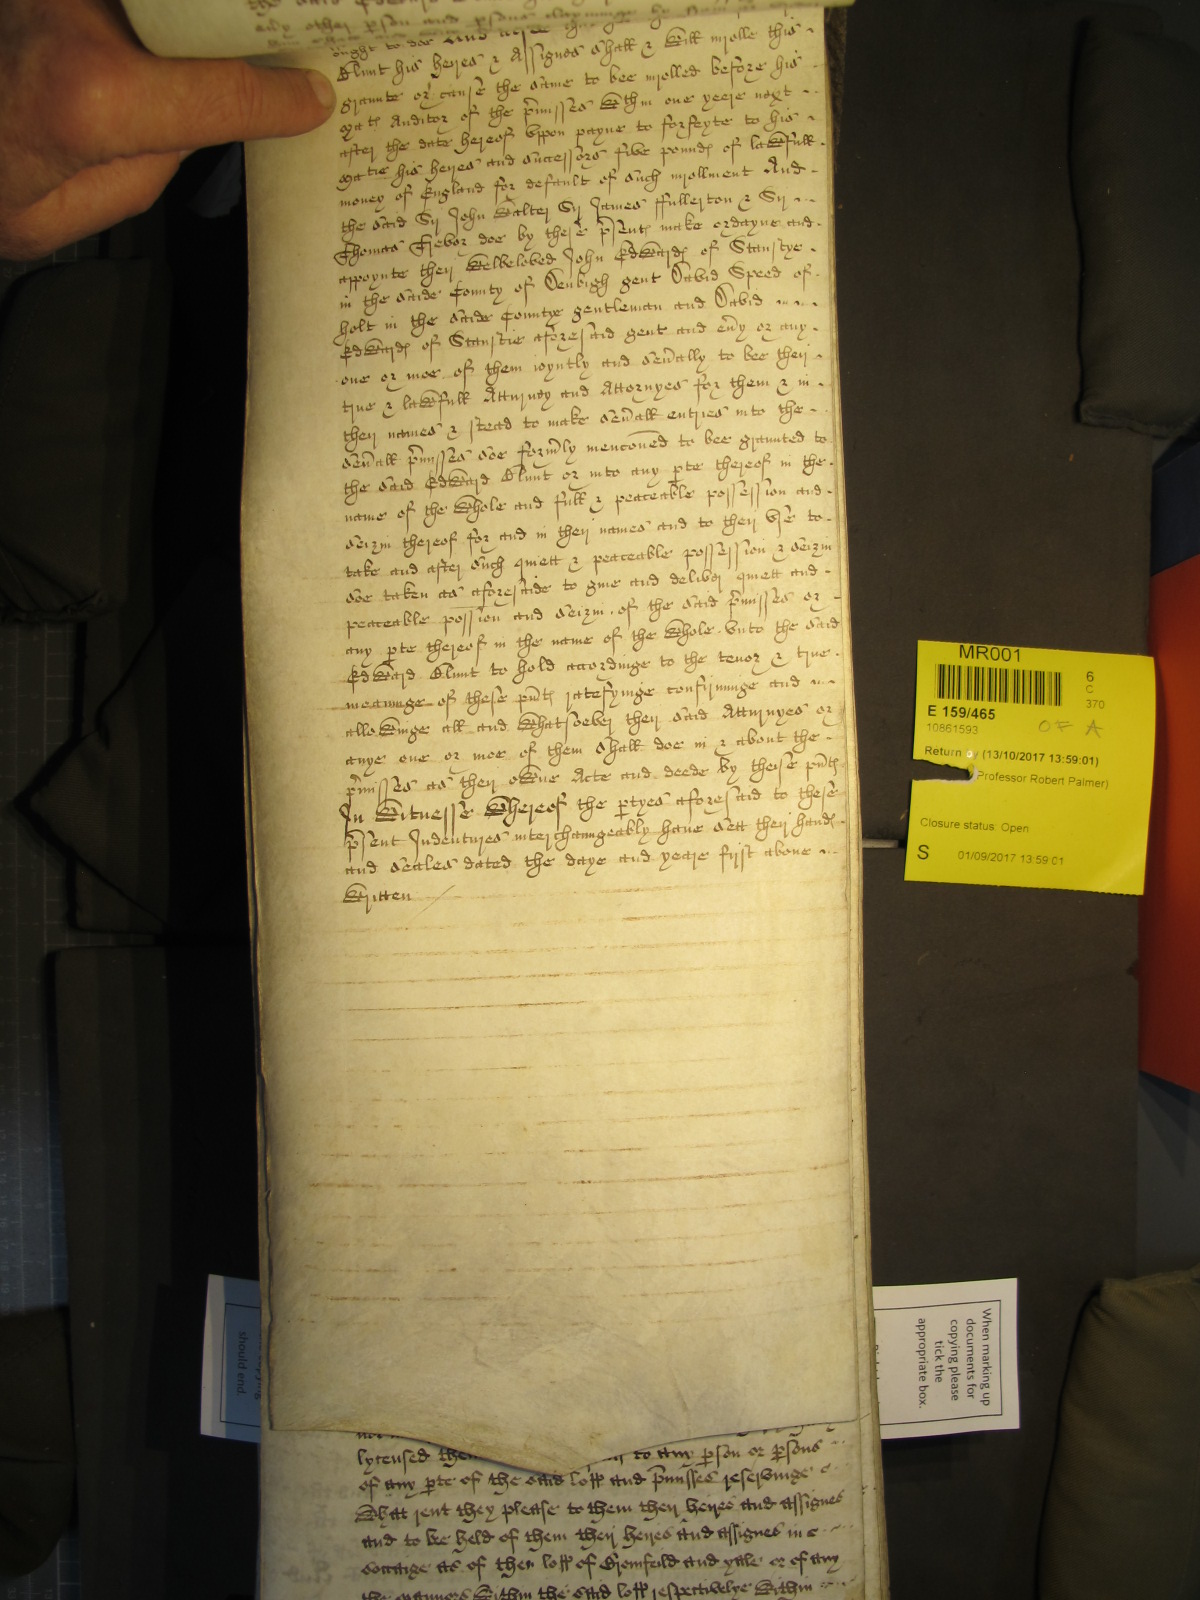 any other pson and psons clayminge by
ought to doe And
Blunt his heires & Assignes shall & will inrolle this
graunte or cause the same to bee inrolled before his
Mats Auditor of the pmisses wthin one yeere next
after the date hereof vppon payne to forfeyte to his
Matie his heires and successors five pounds of lawfull
money of England for default of such inrollment And
the said Sr John Walter Sr James ffullerton & Sr
Thomas Trevor doe by these psents make ordayne and
appoynte their welbeloved John Edwards of Stanstye
in the saide County of Denbigh gent David Speed of
holt in the saide Countye gentleman and David
Edwards of Stanstie aforesaid gent and eny or any
one or moe of them ioyntly and senally to bee their
true & lawfull Atturney and Attornyes for them & in
their names & stead to make senall entries into the
senall pmisses soe formly menconed to bee graunted to
the said Edward Blunt or into any pte thereof in the
name of the whole and full & peaceable possession and
seizin thereof for and in their names and to their vse to
take and after such quiett & peaceable possession & seizin
soe taken as aforesaide to give and deliver quiett and
peaceable possion and seizin of the said pmisses or
any pte thereof in the name of the whole vnto the said
Edward Blunt to hold accordinge to the tenor & true
meaninge of these pnts ratefyinge confirminge and
allowinge all and whatsoever their said Atturnyes or
anye one or moe of them shall doe in & about the
pmisses as their owne Acte and deede by theise pnts
In Witnesse whereof the ptyes aforesaid to these
psent Indentures interchangeably have sett their hands
and seales dated the daye and yeare first above
written
lycensed them to any pson or psons
of any pte of the said lopp and pmisses reservinge
what rent they please to them their heires and assignes
and to be held of them their heires and assignes in
soccage as of their lopp of Bromfeild and yale or of any
the mannors within the said lopp respectivelye within
MR001
6
C
370
E 159/465
OF A
10861593
Return by (13/10/2017 13:59:01)
Professor Robert Palmer)
Closure status: Open
S 01/09/2017 13:59:01
When marking up
documents for
copying please
tick the
appropriate box.
should end.